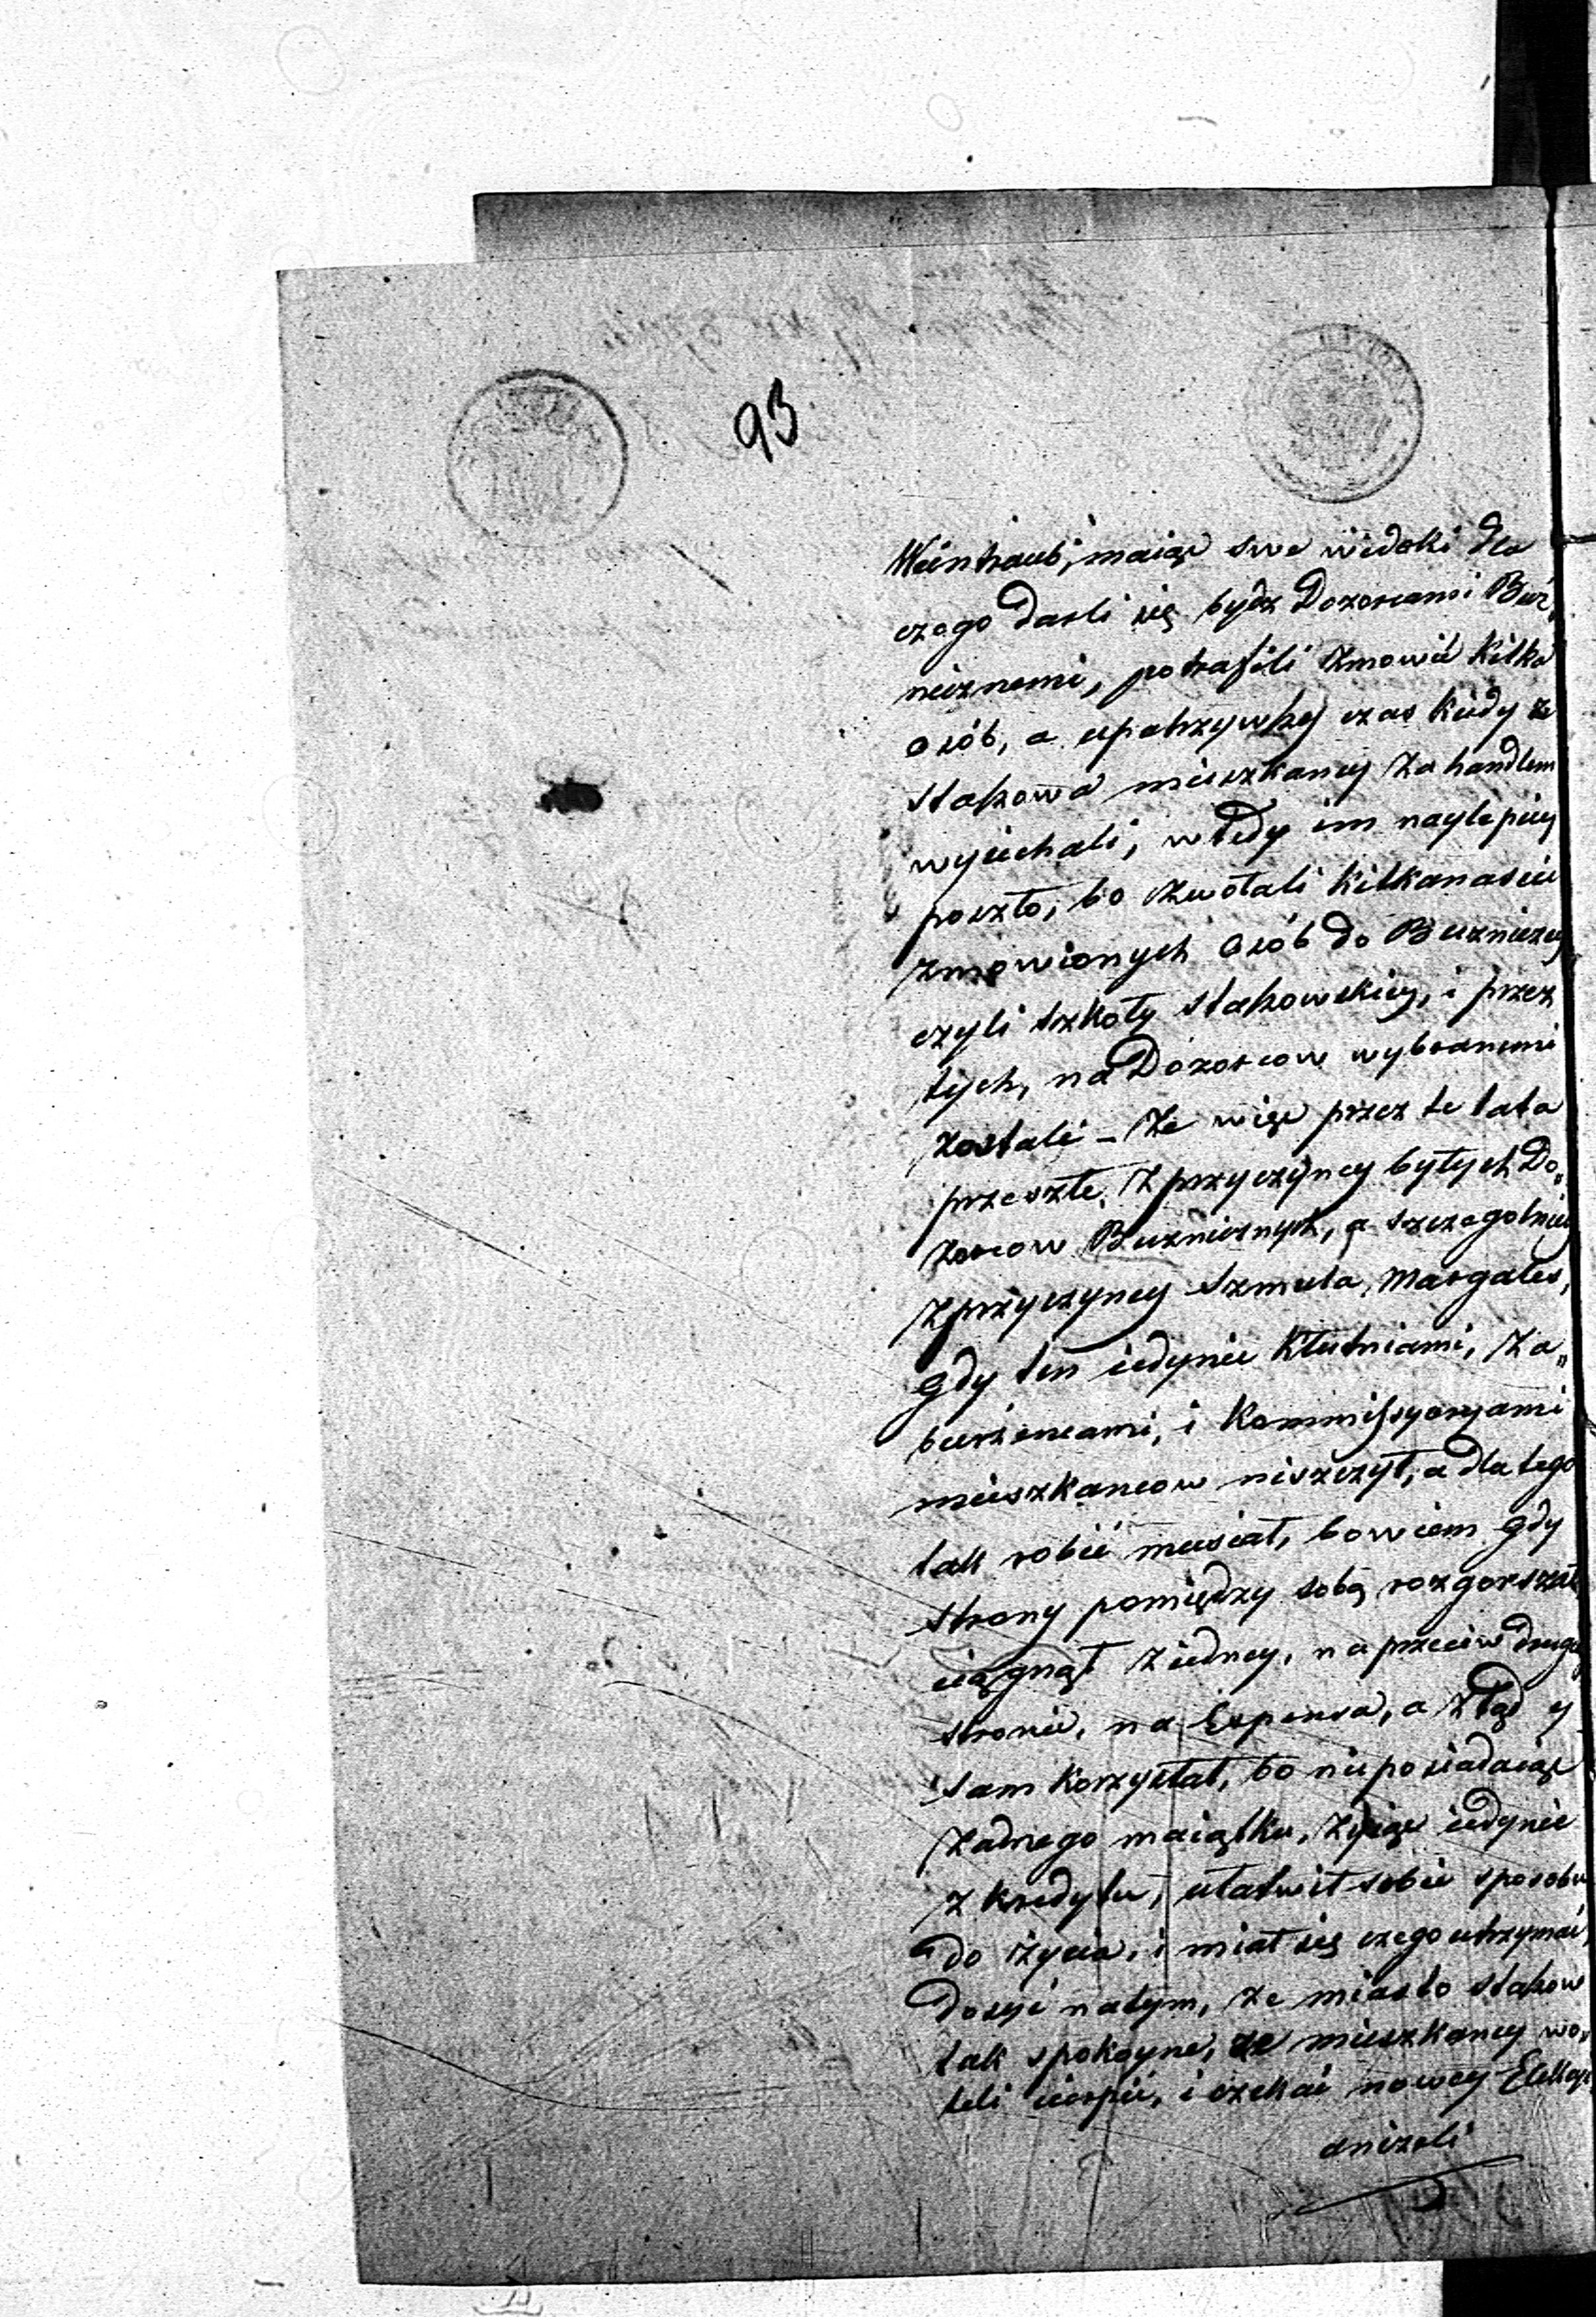 93
Weintraub, maiąc swe widoki dla
czego darli się bydz Dozorcami Buż„
nicznemi, potrafili zmowić kilka
osób, a upatrzywszy czas kiedy ze
Staszowa mieszkancy za handlem
wyiechali, wtedy im naylepiey
poszło, bo zwołali kilkanascie
zmowionych osób do Buznicy
czyli szkoły Staszowskiey, i przez
tych, na Dozorcow wybranemi
zostali – Że więc przez te lata
przeszłe, z przyczyney byłych Do„
zorcow Buznicznych, a szczegolniey
z przyczyney Szmula, Margules,
gdy ten iedynie kłutniami, za„
burzeniami, i Kommissyoryami
mieszkancow niszczył, a dla tego
tak robić musiał, bowiem gdy
strony pomiędzy sobą rozgorszał
ciągnął z iedney, na przeciw drugiey
stronie, na Expensa, a ztąd y
sam korzystał, bo nie posiadaiąc
żadnego maiątku, żyiąc iedynie
z kredytu, ułatwił sobie sposobu
do życia, i miał się czego utrzymać,
dosyć natym, że miasto Staszow
tak spokoyne, że mieszkancy wo„
leli cierpić, i czekać nowey Elekcyi
aniżeli